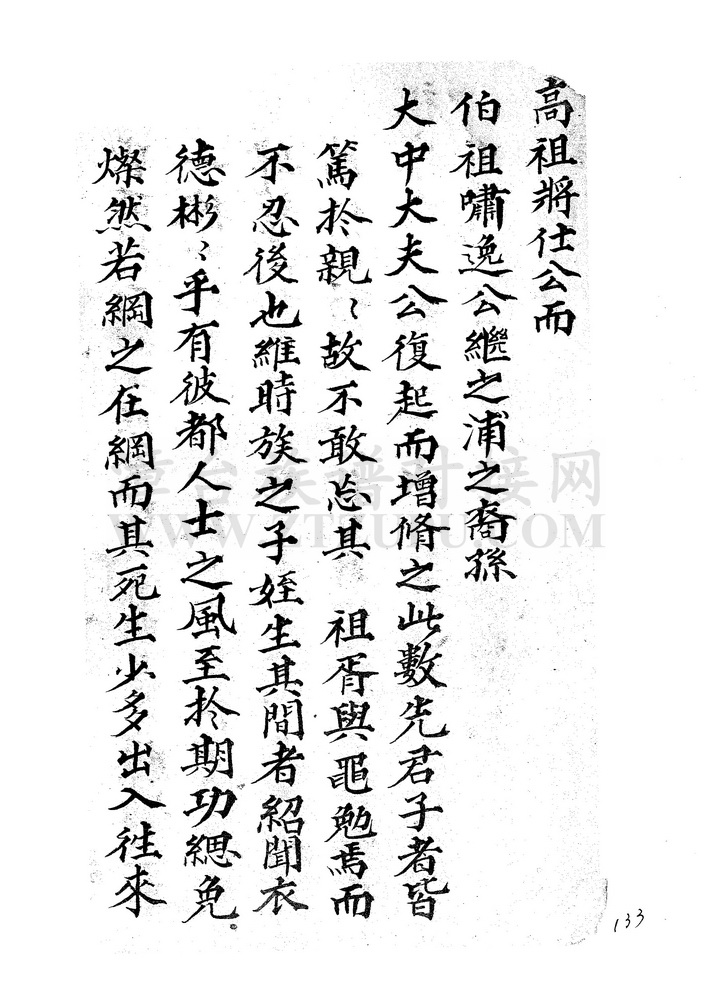 高祖將仕公而
伯祖嘯逸公繼之浦之裔孫
大中大夫公復起而增脩之此數先君子者皆
篤於親〻故不敢忘其 祖胥與黽勉焉而
不忍後也維時族之子姪生其間者紹聞衣
德彬〻乎有彼都人士之風至於期功緦免
燦然若綱之在綱而其死生少多出入徃來
章台族譜对接网
WWW.ZTZUPU.COM
133